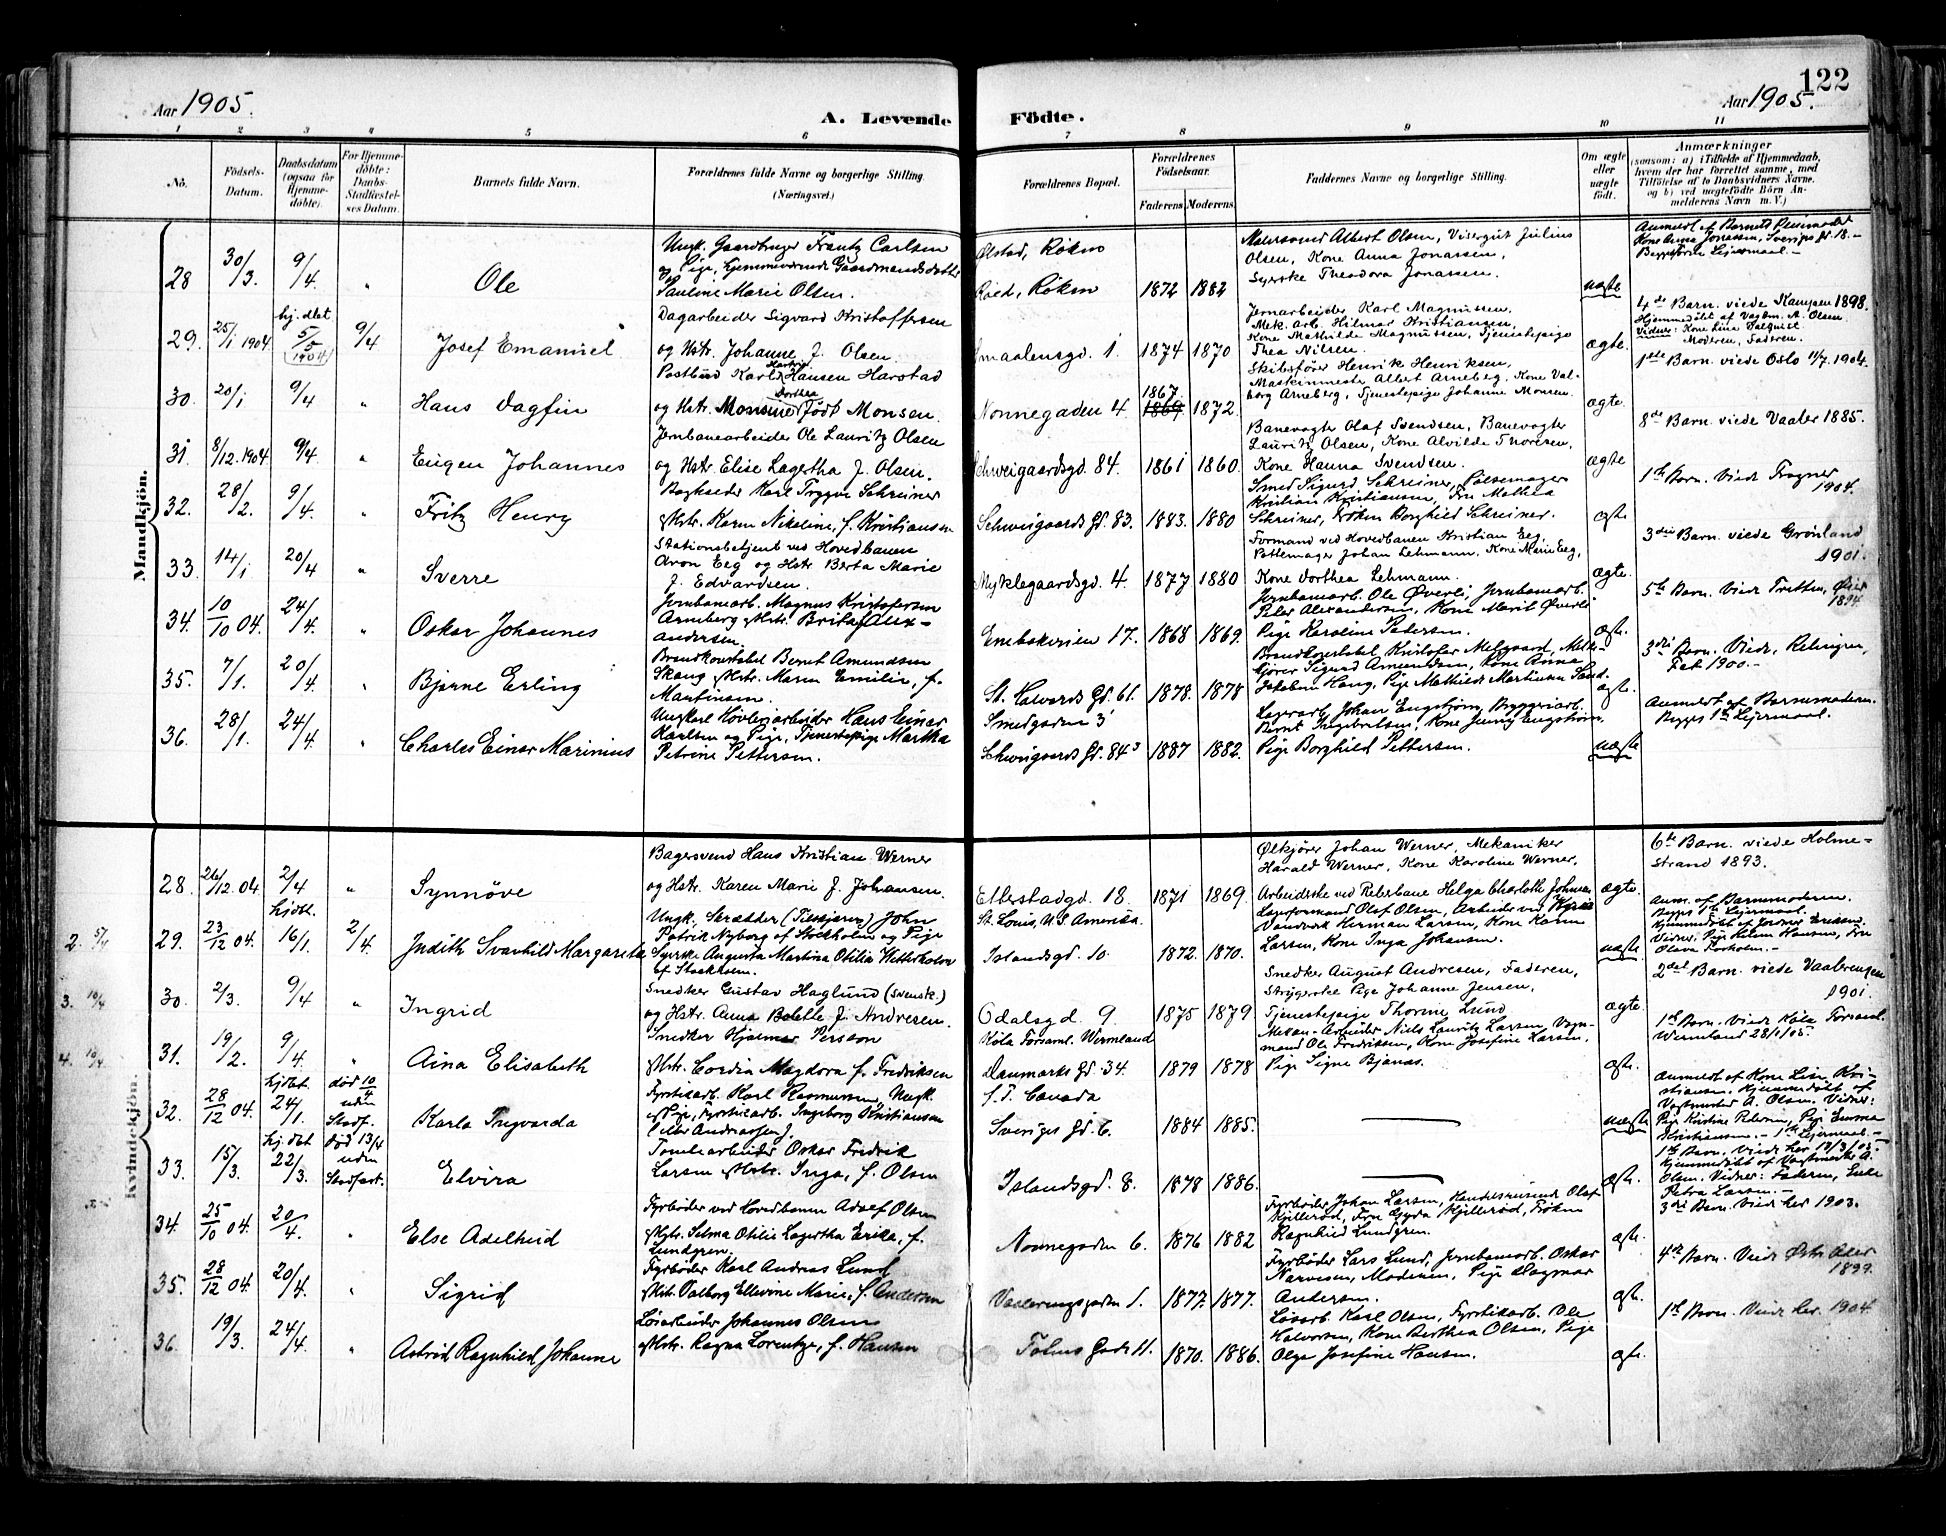 122
Aar 1905.
A. Levende Födte.
Aar 1905.
1 2 3 4 5 6 7 8 9 10 11
No.
Födsels-Datum.
Daabsdatum (ogsaa for Hjemme-döbte).
For Hjemme-döbte: Daabs-Stadfæstel-ses Datum.
Barnets fulde Navn.
Forældrenes fulde Navne og borgerlige Stilling (Næringsvei.)
Forældrenes Bopæl.
Forældrenes Födselsaar.
Faderens. Moderens.
Faddernes Navne og borgerlige Stilling.
Om ægte eller uægte födt.
Anmærkninger
(saasom: a) i Tilfælde af Hjemmedaab,
hvem der har forrettet samme, med
Tilföielse af to Daabsvidners Navne.
og b) ved uægtefödte Börn An-
melderens Navn m. V.)
Mandkjön.
28 30/3. 9/4. " Ole
Ungk. Gaardbruger Frantz Carlsen
og Pige, hjemmeværende Gaardmandsdatter
Pauline Marie Olsen.
Ølstad, Røken
Røed, Røken 1872 1882
Albert Olsen, Visergut Julius
Olsen, Kone Anna Jonassen,
Syerske Theodora Jonassen.
uægte
Anmeldt af Barnets
Kone Anna Jonassen, Sverigs gd. 18.-
Begges første Leiermaal.-
29. 25/1 1904. hj. dbt. 5/5 (1904) 9/4 Josef Emanuel
Dagarbeider Sigvard Kristoffersen
og Hstr. Johanne f. Olsen.
Smaalensgd. 1. 1874 1870
Jernarbeider Karl Magnussen,
Mek. Arb. Hilmar Kristiansen,
Kone Mathilde Magnussen, Tjenestepige
Thea Nilsen.
ægte.
4de Barn. viede Kampen 1898.
Hjemmedöbt af Vagtm. A. Olsen.
Vidner: Kone Lina
Moderen, Faderen.
30. 20/1 9/4 " Hans Dagfin
Postbud Karl Hansen Harstad
og Hstr. Monsine Dorthea född Monsen.
Nonnegaden 4. 1867 1869 1872.
Skibsförer Henrik Henriksen,
Maskinmester Albert Arneberg, Kone Val-
borg Arneberg, Tjenestepige Johanne Monsen.
ægte.
1ste Barn. viede Oslo 11/7. 1904.
31. 8/12. 1904. 9/4. " Eugen Johannes
Jernbanearbeider Ole Lauritz Olsen
og Hstr. Elise Lagertha f. Olsen.
Schweigaardsgd. 84. 1861 1860.
Banevogter Olaf Svendsen, Banevogter
Lauritz Olsen, Kone Alvilde Thoresen,
Kone Hanna Svendsen.
ægte
8de Barn. viede Vaaler 1885.
32. 28/2. 9/4. " Fritz Henry
Bogbinder Karl Trygve Schreiner
& Hstr. Karen Nikoline, f. Kristiansen
Schweigaards Gd. 83. 1883. 1880
Smed Sigurd Schreiner, Pölsemager
Kristian Kristiansen, Fru Mathea
Schreiner, Frøken Borghild Schreiner.
ægte
1ste Barn. Viede Frogner
1904.
33. 14/1 20/4 " Sverre
Stationsbetjent ved Hovedbanen
Aron Eeg og Hstr. Berta Marie
f. Edvardsen.
Myklegaardsgd. 4. 1877 1880
Formand ved Hovedbanen Kristian Eeg,
Pottemager Johan Lehmann, Kone Marie Eeg,
Kone Dorthea Lehmann.
ægte.
3die Barn. viede Grönland
1901.
34. 10/10 04. 24/4. " Oskar Johannes
Jernbanearb. Magnus Kristofersen
Arneberg & Hstr. Brita f. Alex-
andersen.
Enebakveien 17. 1868 1869.
Jernbanearb. Ole Øverli, Jernbanearb.
Peter Alexandersen, Kone Marit Øverli
Pige Karoline Pedersen.
ægte.
5te Barn. Viede Tretten, Øier
1894
35. 7/1. 20/4 " Bjarne Erling
Brandkonstabel Bernt Amundsen
Skaug & Hstr. Maren Emilie, f.
Martinsen.
St. Halvards Gd. 61. 1878. 1878
Brandkonstabel Kristofer Melgaard,
kjörer Sigurd Amundsen, Kone Anna
Jakobine Haug, Pige Mathilde Martinsen Sand.
ægte.
3die Barn. Viede, Relingen,
Fet 1900.-
36. 28/1. 24/4. " Charles Einar Marinius
Ungkarl Høvleriarbeider Hans Einar
Karlsen og Pige, Tjenestepige Martha
Petrine Pettersen.
Smedgaden 3
Schweigaards Gd. 84 1887 1882.
Lagerarb. Johan Engström, Bryggeriarb.
Bernt Ingebretsen, Kone Jenny Engström,
Pige Borghild Pettersen.
uægte
Anmeldt af Barnemoderen.
Begges 1ste Leiermaal.
Kvindekjön.
28. 26/12. 04 2/4 " Synnöve
Bagersvend Hans Kristian Werner
og Hstr. Karen Marie f. Johansen.
Etterstadgd. 18. 1871 1869.
Ølkjörer Johan Werner, Mekaniker
Harald Werner, Kone Karoline Werner,
Arbeiderske ved Reberbane Helga Charlotte Johnsen
ægte.
6te Barn. viede Holme-
strand 1893.
2. 5/4
29. 23/12 04. hjdbt. 16/1. 2/4. Judith Svanhild Margareta
Ungk. Skrædder (Tilskjærer) John
Patrik Nyborg af Stockholm og Pige
Syerske Augusta Martina Otilia Wetterholm
af Stockholm.
St. Louis, U.S. Amerika.
Islandsgd. 10. 1872. 1870.
Lagformand Olaf Olsen, Arbeider ved
Vandværk Herman Larsen, Kone Karen
Larsen, Kone Inga Johansen.
uægte
Anm. af Barnemoderen.
Begges 1ste Leiermaal.
Hjemmedöbt af Jordmor Eriksen.
Vidner: Pige Helene Hansen, Fru
Olava Torholm.-
3. 10/4
30. 2/3. 9/4 " Ingrid
Snedker Gustav Haglund (svensk.)
og Hstr. Anna Bolette f. Andresen.
Odalsgd. 9. 1875 1879
Snedker August Andresen, Faderen,
Strygerske Pige Johanne Jensen,
Tjenestepige Thorine Lund
ægte.
2det Barn. viede Vaalerengen
1901.
4. 10/4
31. 19/2. 9/4. " Aina Elisabeth
Snedker Hjalmar Persson
& Hstr. Cordia Magdora f. Fredriksen
Köla Forsaml. Wermland
Danmarks Gd. 34. 1879 1878
Mekan- Arbeider Niels Lauritz Larsen, Vogn-
mand Ole Fredriksen, Kone Josefine Larsen,
Pige Signe Bjanæs.
ægte.
1ste Barn. Viede Köla Forsaml.
Wermland 28/1/05.-
32. 28/12 04. hjdbt. 24/1. död 10/4 uden Stadf. Karla Ingvarda
Fyrstikarb. Karl Rasmussen, Ungk.
& Pige, Fyrstikarb. Ingeborg Kristiansen
(eller Andreassen).
f. T. Canada
Sveriges Gd. 6. 1884 1885.
uægte
Anmeldt af Kone Lise Kri-
stiansen. Hjemmedöbt af
Vagtmester A. Olsen. Vidner:
Pige Kristine Pedersen, Pige Emma
Kristiansen.- 1ste Leiermaal.-
33. 15/3. hj. dbt 22/3. död 13/4 uden Stadfæst. Elvira
Tomtearbeider Oskar Fredrik
Larsen & Hstr. Inga, f. Olsen
Islandsgd. 8. 1878 1886.
ægte.
1ste Barn. Viede her 17/3/05-
Hjemmedöbt af Vagtmester A.
Olsen. Vidner: Faderen,
Petra Larsen.-
34. 25/10 04. 20/4. Else Adelheid
Fyrböder ved Hovedbanen Adolf Olsen
& Hstr. Selma Otilie Lagertha Erika, f.
Lundgren.
Nonnegaden 6. 1876 1882
Fyrböder Johan Larsen, Handelsreisende Olaf
Kjilleröd, Fru Gyda Kjilleröd, Frøken
Ragnhild Lundgren.
ægte.
3die Barn. Viede her 1903.
35. 28/12 04. 20/4. " Sigrid
Fyrböder Karl Andreas Lund
& Hstr. Valborg Ellevine Marie, f. Andersen
Vaalerengsgaden 1. 1877. 1877.
Fyrböder Lars Lund, Jernbanearb. Oskar
Narvesen, Moderen, Pige Dagmar
Andersen.
ægte.
4de Barn. Viede
1899.
36. 19/3. 24/4. " Astrid Ragnhild Johanne
Johannes Olsen
& Hstr. Ragna Lorentze, f. Hansen
1870. 1886.
Karl Olsen, Fyrstikarb. Ole
Halvorsen, Kone Berthea Olsen, Pige
Olga Josefine Hansen.
ægte.
1ste Barn. Viede her. 1904